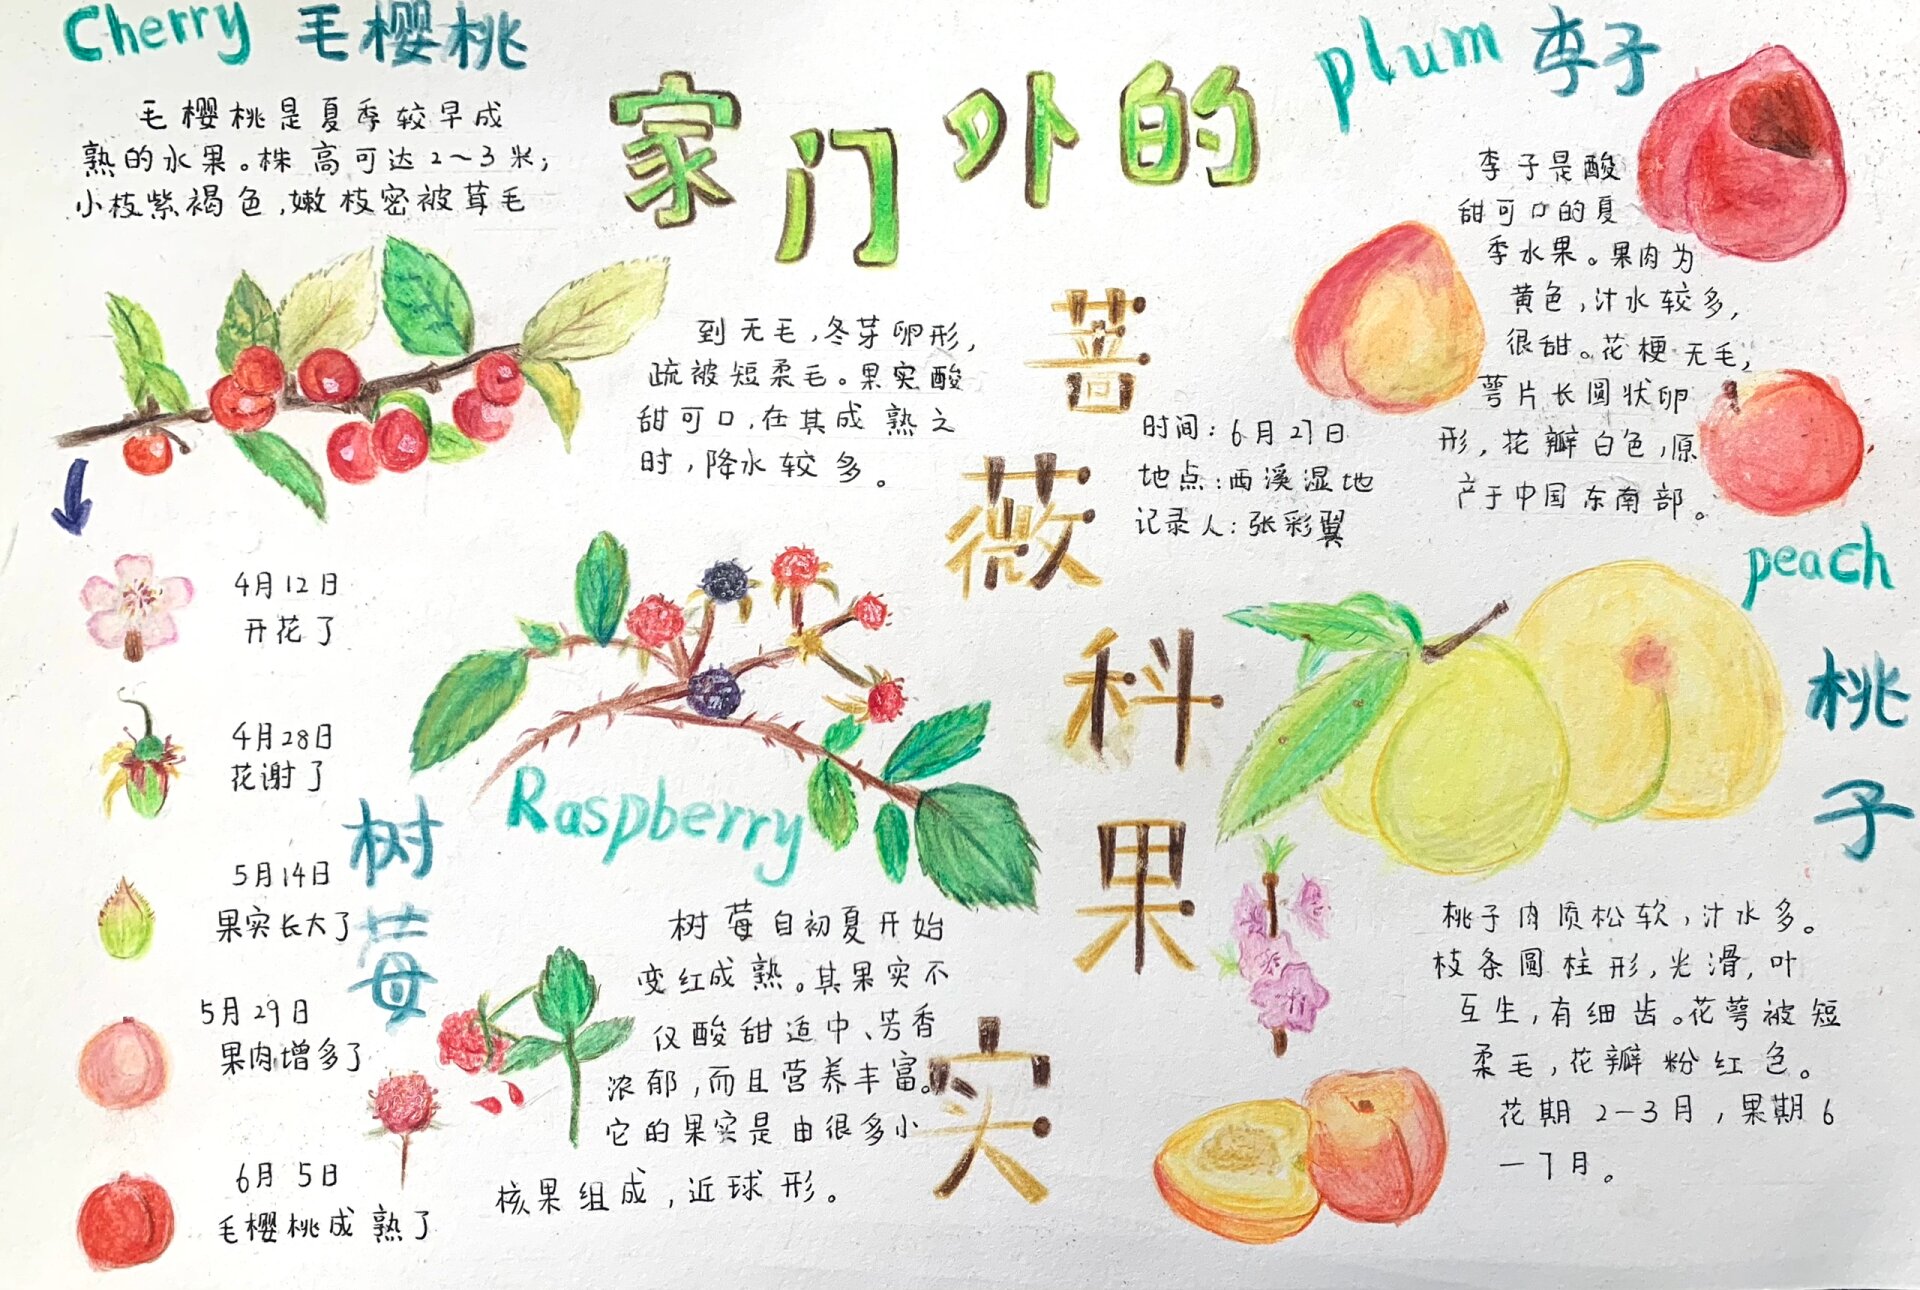 家门外的
蔷薇科果实
Cherry 毛樱桃
毛樱桃是夏季较早成
熟的水果。株高可达2～3米；
小枝紫褐色，嫩枝密被茸毛
到无毛，冬芽卵形，
疏被短柔毛。果实酸
甜可口，在其成熟之
时，降水较多。
4月12日
开花了
4月28日
花谢了
5月14日
果实长大了
5月29日
果肉增多了
6月5日
毛樱桃成熟了
时间：6月27日
地点：西溪湿地
记录人：张彩翼
plum 李子
李子是酸
甜可口的夏
季水果。果肉为
黄色，汁水较多，
很甜。花梗无毛，
萼片长圆状卵
形，花瓣白色，原
产于中国东南部。
Raspberry
树莓
树莓自初夏开始
变红成熟。其果实不
仅酸甜适中、芳香
浓郁，而且营养丰富。
它的果实是由很多小
核果组成，近球形。
peach
桃子
桃子肉质松软，汁水多。
枝条圆柱形，光滑，叶
互生，有细齿。花萼被短
柔毛，花瓣粉红色。
花期2—3月，果期6
—7月。